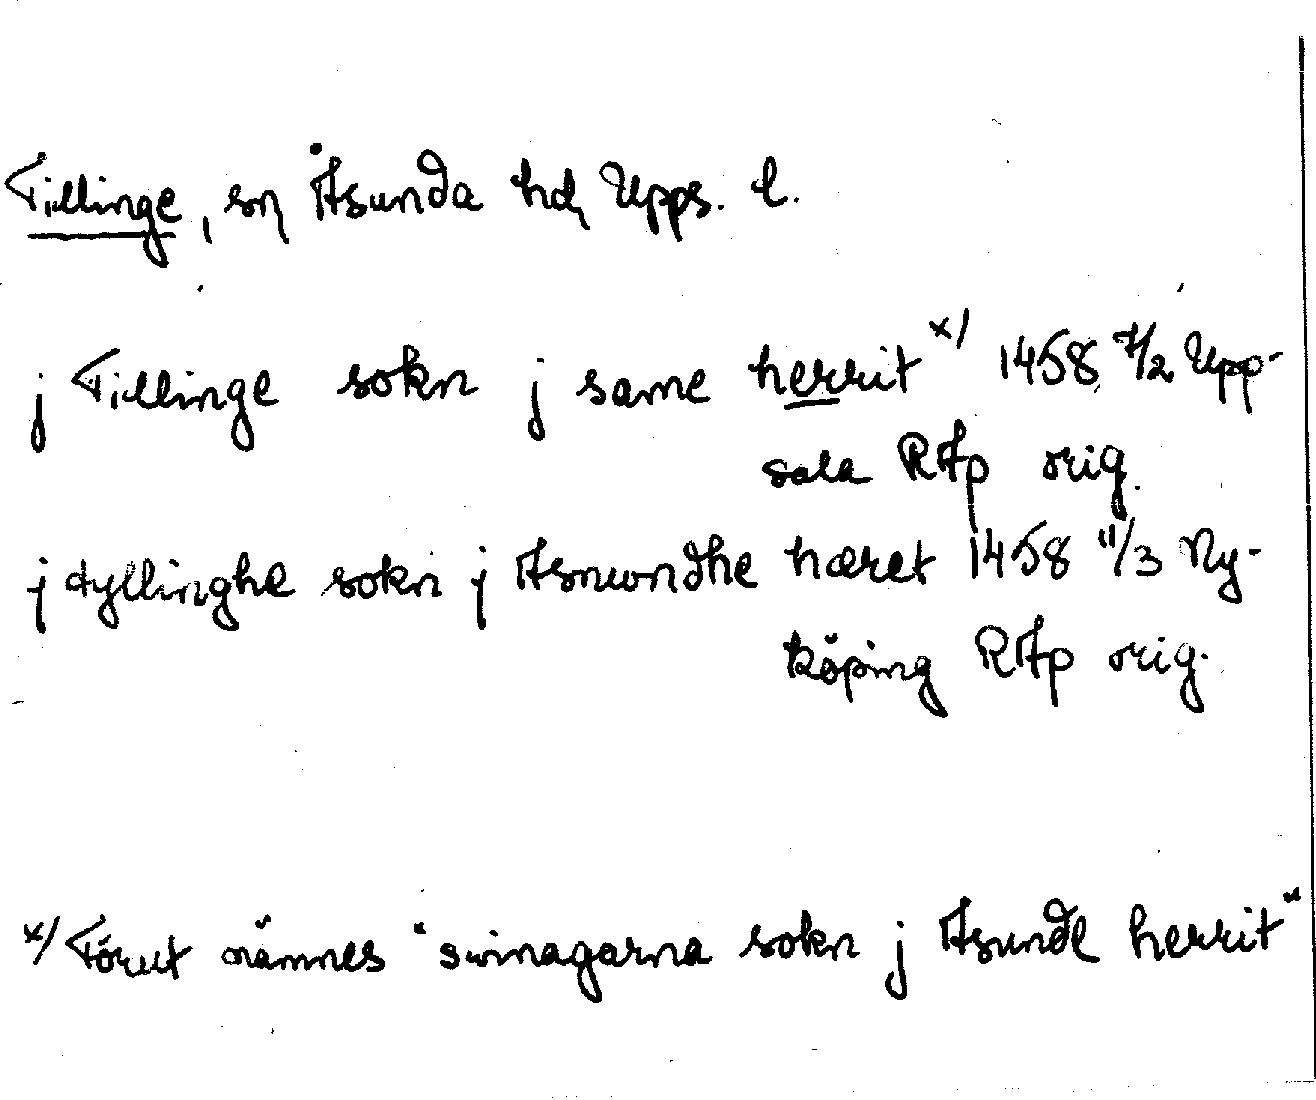 Tillinge, sn Åsunda hd, Upps. l.
j Tillinge sokn j same herrit x/ 1458 7/2 Upp-
sala RAp orig.
j tyllinghe sokn j Asmundhe hæret 1458 11/3 Ny-
köping RAp orig.
x/ Förut nämnes "swinagarna sokn j Asunde herrit"